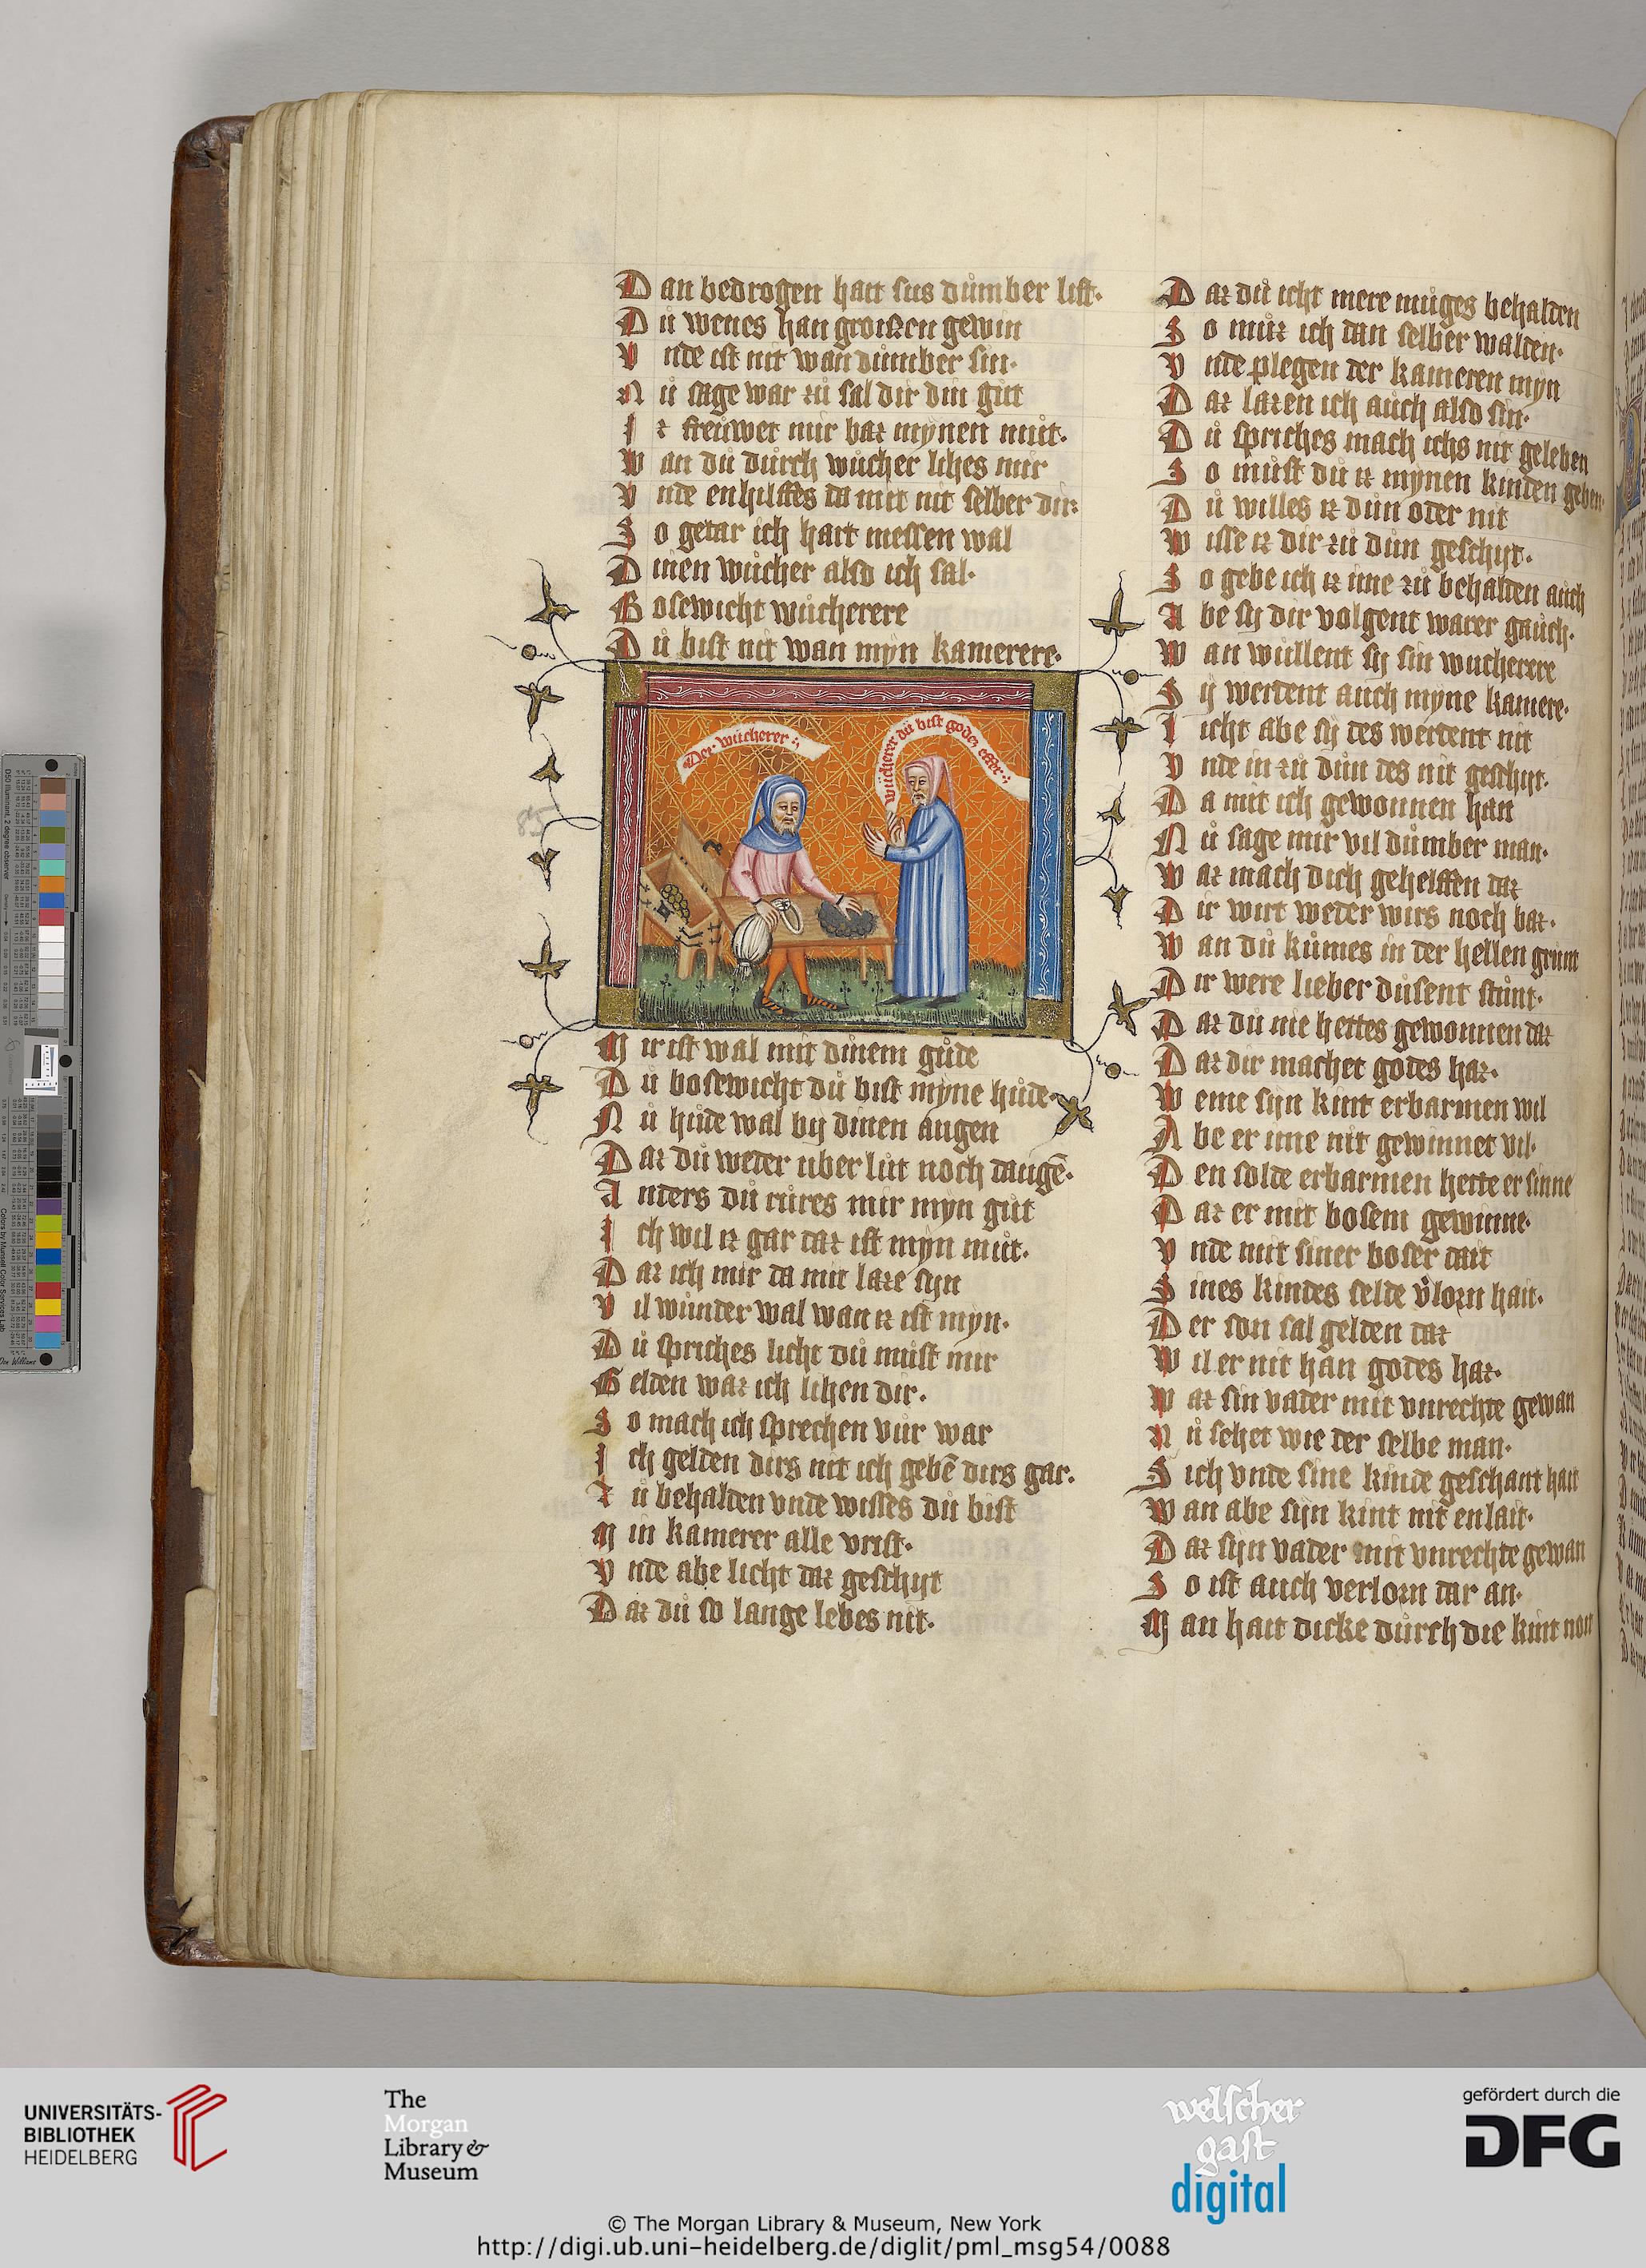 Dan bedrogen hait sus důmber list·
Dů wenes han groißen gewin
Vnde ist nit wan důmber sin·
Nů sage war zů sal dir din gůt
Iz freůwet mir baz mynen můt·
Wan dů důrch wůcher lihes mir
Vnde enhilffes da mit nit selber dir·
So getar ich hart messen wal
Dinen wůcher also ich sal·
Bosewicht wůcherere
Dů bist nit wan myn kamerere·
Der wůcherer
wůcherer dů bist godez
Mir ist wal mit dinem gůde
Dů bosewicht dů bist myne hůde·
Nů hůde wal by dinen augen
Daz dů weder uberlůt noch taugē·
Anders dů růres mir myn gůt
Ich wil iz gar daz ist myn můt·
Daz ich mir da mit laze sijn
Vil wůnder wal wan iz ist myn·
Dů spriches licht dů můst mir
Gelden waz ich lihen dir·
So mach ich sprechen vůr war
Ich gelden dirs nit ich gebē dirs gar·
Zů behalden vnde wisses dů bist
Min kamerer alle vrist·
Vnde abe licht daz geschiȷt
Daz dů so lange lebes nit·
Daz dů icht mere můges behalden
So můz ich dan selber walden·
Vnde plegen der kameren myn
Daz lazen ich auch also sin·
Dů spriches mach ichs nit geleben
So můst dů iz mynen kinden geben·
Dů willes iz důn oder nit
Wisse iz dir zů důn geschijt·
So gebe ich iz ime zů behalden auch
Abe sij dir volgent warer gauch·
Wan wůllent sij sin wucherere
Sij werdent auch myne kamere·
Licht abe sij des werdent nit
Vnde in zů důn des nit geschijt·
Da mit ich gewonnen han
Nů sage mir vil důmber man·
Waz mach dich gehelffen daz
Dir wirt weder wirs noch baz·
Wan dů kůmes in der hellen grunt
Dir were lieber důsent stůnt·
Daz dů nie hettes gewonnen daz
Daz dir machet godes haz·
Weme sijn kint erbarmen wil
Abe er ime nit gewinnet vil·
Den solde erbarmen hette er sinne
Daz er mit bosem gewinne·
Vnde mit siner boser dait
Sines kindes selde v̊lorn hait·
Der son sal gelden daz
Wil er nit han godes haz·
Waz sin vader mit vnrechte gewan
Nů sehet wie der selbe man·
Sich vnde sine kinde geschant hait
Wan abe sijn kint nit enlait·
Daz sijn vader mit vnrechte gewan
So ist auch verlorn dar an·
Man hait dicke důrch die kint noit
85
UNIVERSITÄTS-
BIBLIOTHEK
HEIDELBERG
The
Morgan
Library &
Museum
welscher
gast
digital
gefördert durch die
DFG
© The Morgan Library & Museum, New York
http://digi.ub.uni-heidelberg.de/diglit/pml_msg54/0088